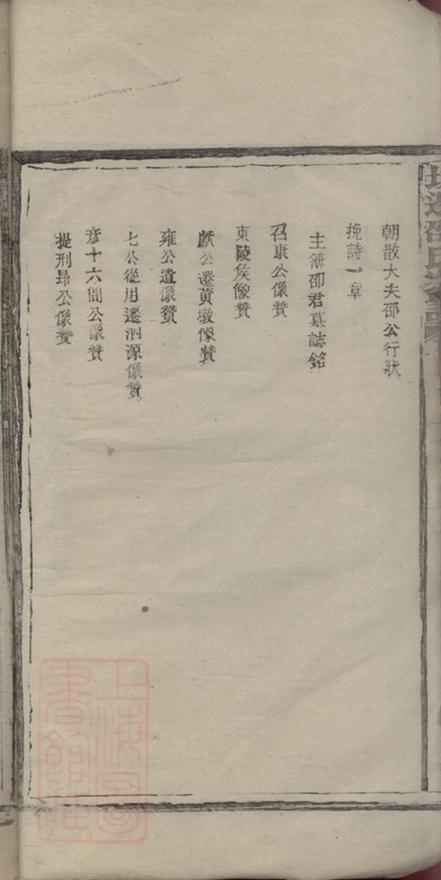 朝散大夫邵公行狀
挽詩一章
主簿邵君墓誌銘
召康公像贊
東陵侯像贊
獻公遷黃墩像贊
雍公遺像贊
七公從用遷泗源像贊
彥十六間公像贊
提刑昻公像贊
上海圖書館藏